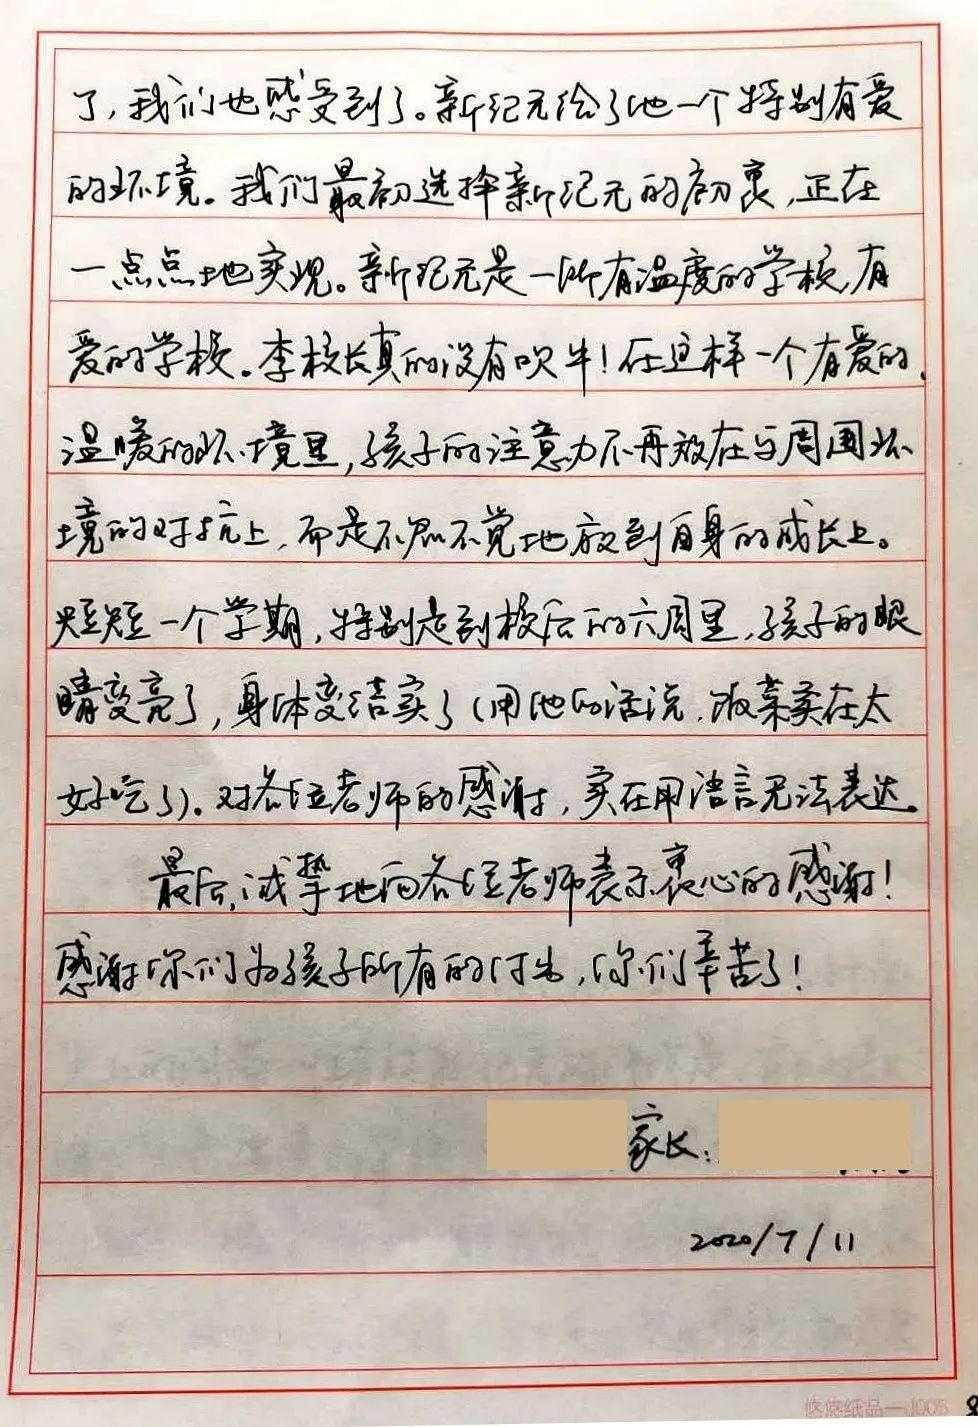 了,我们也感受到了。新纪元给了他一个特别有爱
的环境。我们最初选择新纪元的初衷,正在
一点点地实现。新纪元是一所有温度的学校,有
爱的学校。李校长真的没有吹牛!在这样一个有爱的、
温暖的环境里,孩子的注意力不再放在与周围环
境的对抗上,而是不知不觉地放到自身的成长上。
短短一个学期,特别是到校后的六周里,孩子的眼
睛变亮了,身体变结实了(用他的话说,饭菜实在太
好吃了)。对各位老师的感谢,实在用语言无法表达。
最后,诚挚地向各位老师表示衷心的感谢!
感谢你们为孩子所有的付出,你们辛苦了!
家长:
2020/7/11
悠悠纸品—1005